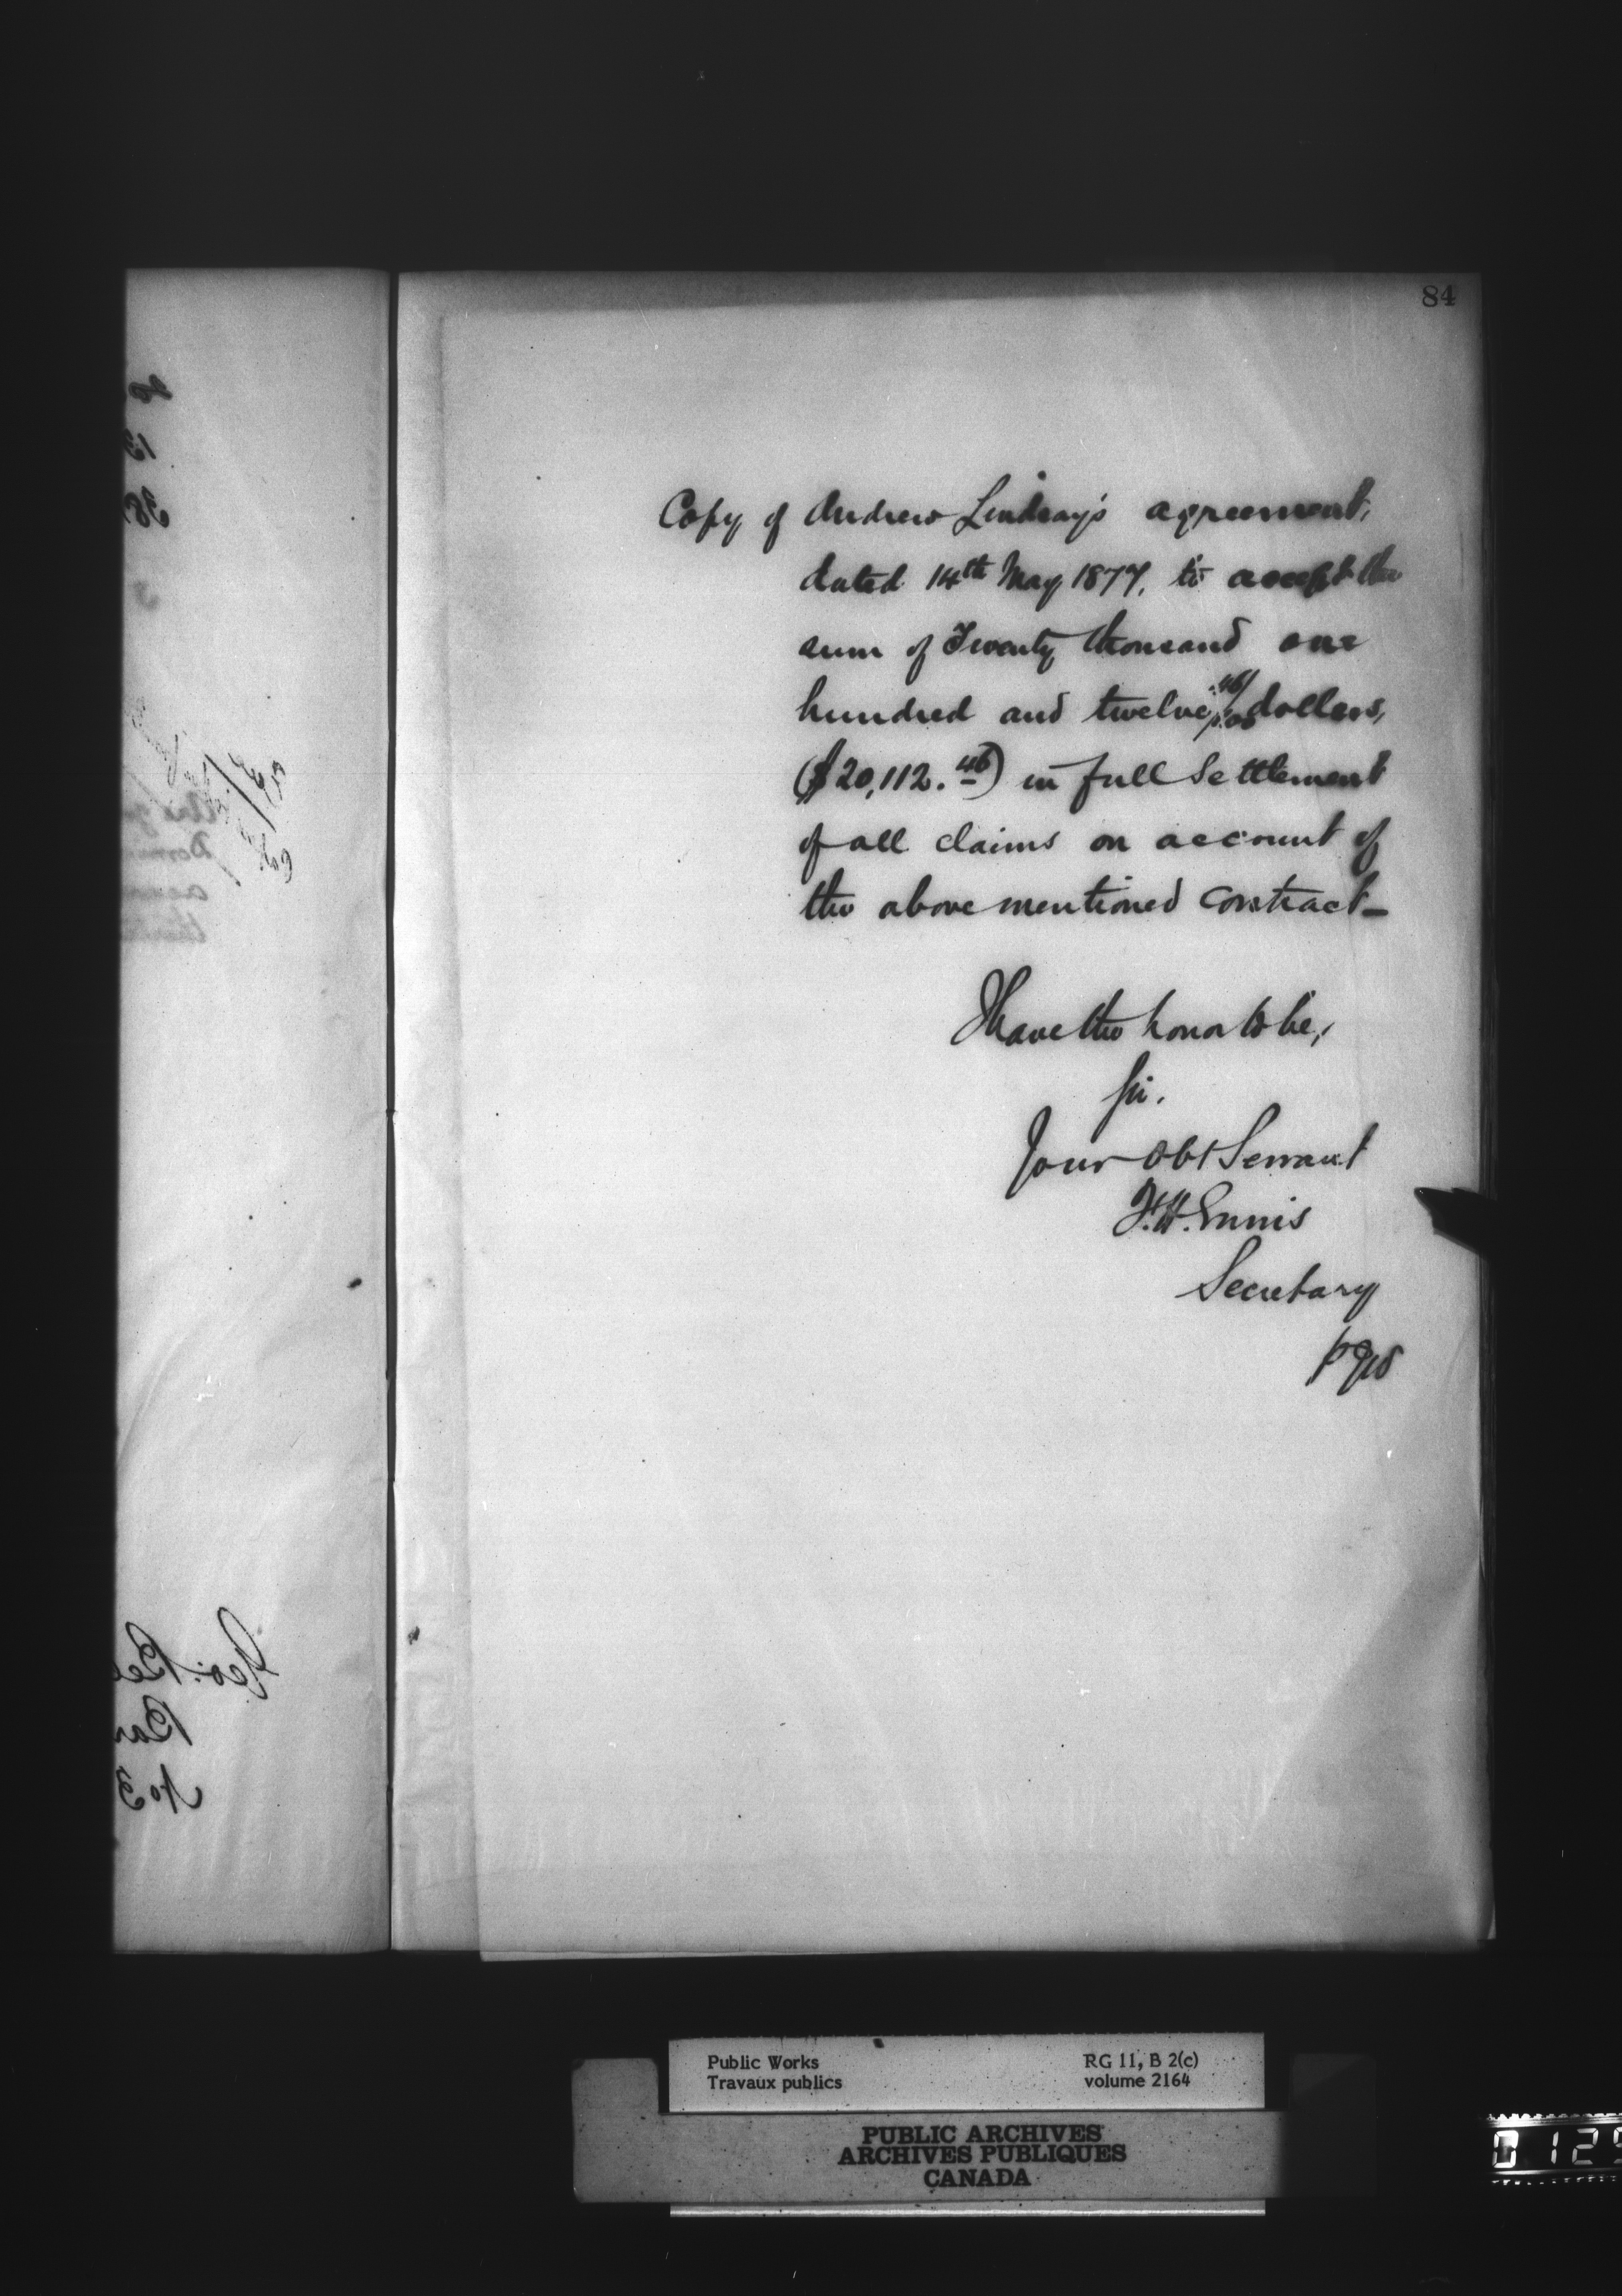 84
Copy of Andrew Lindsay's agreement,
dated 14th May 1877, to accept the
sum of Twenty thousand one
hundred and twelve 46/100 dollars,
($20,112.46) in full settlement
of all claims on account of
the above mentioned contract_
I have the honor to be,
Sir.
Your Obt Servant
F.H. Ennis
Secretary
Geo.
No 3
Public Works
Travaux publics
RG 11, B 2(c)
volume 2164
PUBLIC ARCHIVES
ARCHIVES PUBLIQUES
CANADA